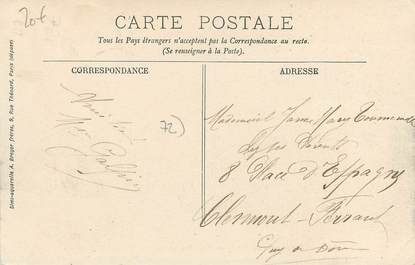 20f
CARTE POSTALE
Tous les Pays étrangers n'acceptent pas la Correspondance au recto.
(Se renseigner à la Poste).
CORRESPONDANCE
ADRESSE
72
Mademoiselle Jane Mary
8 Place d'Espagne
Clermont-Ferrand
Puy de Dôme
Simi-aquarelle A. Breger frères, 9, Rue Thénard, Paris (déposé)